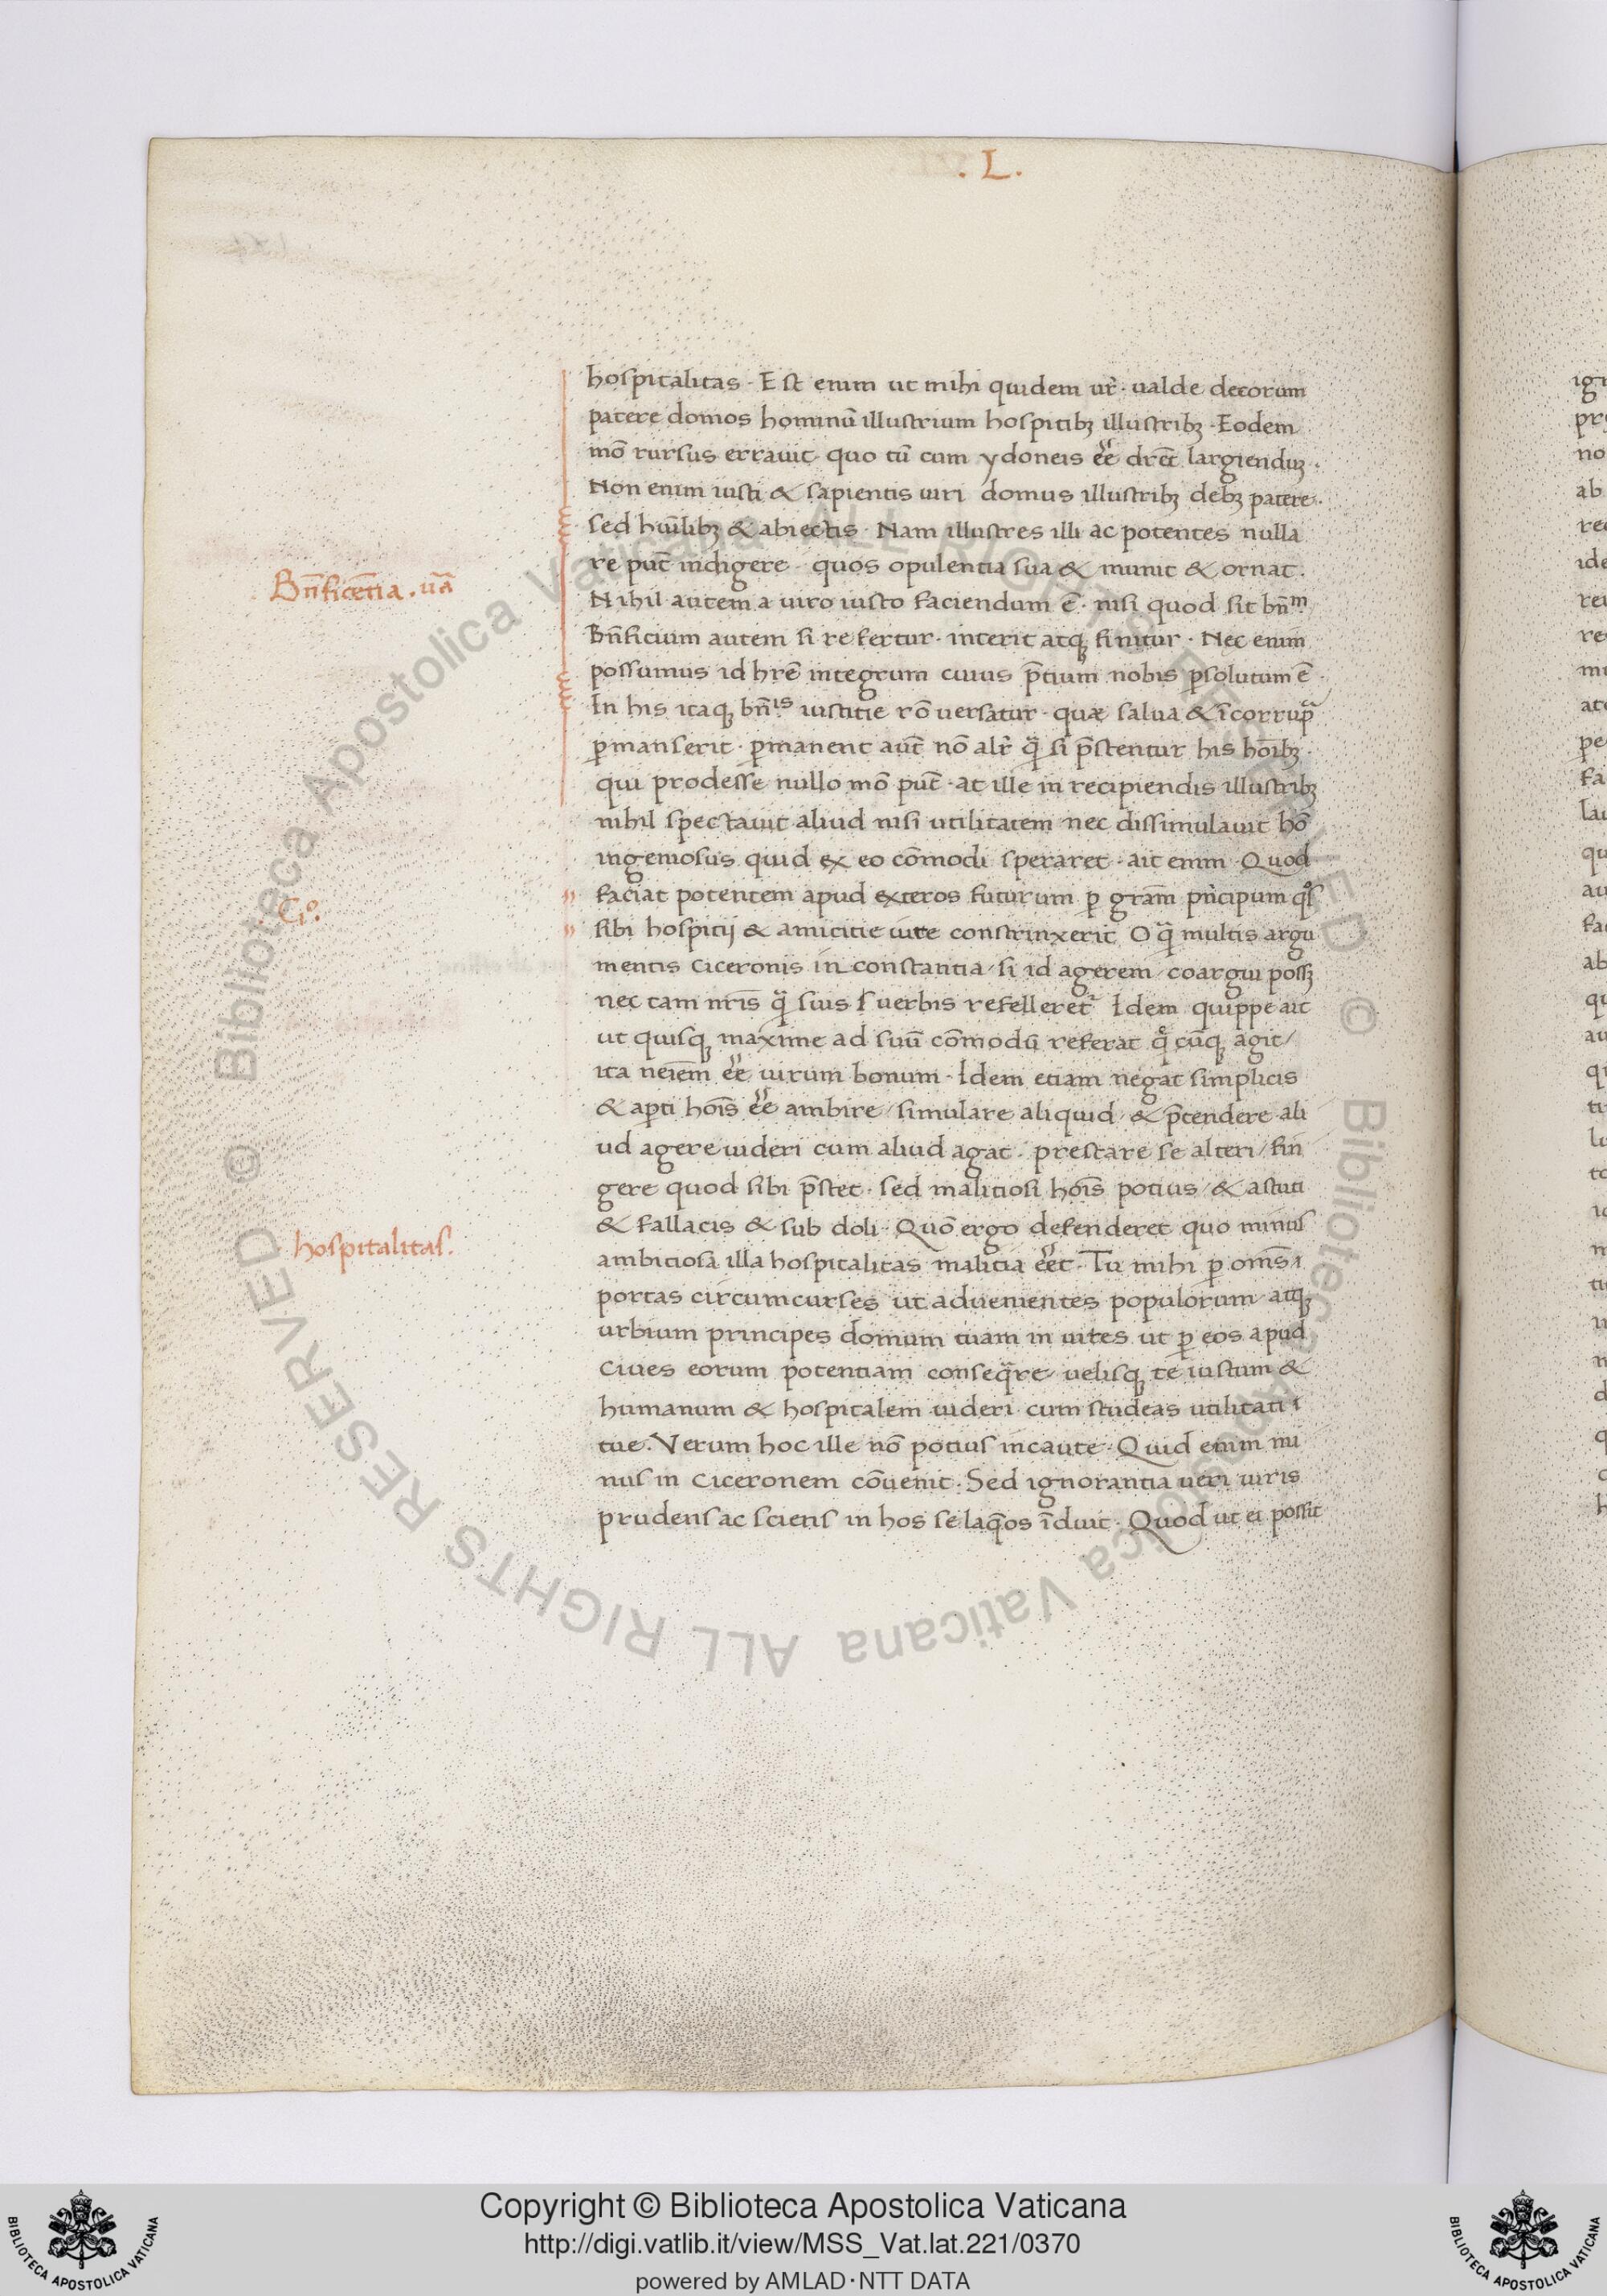 . L .
hospitalitas · Est enim ut mihi quidem ur̃ · ualde decorum
patere domos hominũ illustrium hospitibꝫ illustribꝫ · Eodem
mõ rursus errauit quo tũ cum ydoneis eẽ drẽt largienduꝫ ·
Non enim iusti & sapientis uiri domus illustribꝫ debꝫ patere ·
sed hũilibꝫ & abiectis · Nam illustres illi ac potentes nulla
re pũt indigere · quos opulentia sua & munit & ornat .
Bñficẽtia . uã
Nihil autem a uiro iusto faciendum ẽ · nisi quod sit bñᵐ
Bñficium autem si refertur · interit atqꝫ finitur · Nec enim
possumus id hrẽ integrum cuius p̃tium nobis ꝑsolutum ẽ ·
In his itaqꝫ bñⁱˢ iustitie rõ uersatur · quæ salua & ĩcorrupᵃ̃
ꝑmanserit · ꝑmanent aut̃ nõ alr̃ q̃ si p̃stentur his hoĩbꝫ ·
qui prodesse nullo mõ pũt · at ille in recipiendis illustribꝫ
nihil spectauit aliud nisi utilitatem nec dissimulauit hõ
ingeniosus quid ex eo cõmodi speraret · ait enim Quod
" faciat potentem apud exteros futurum ꝑ grãm pñcipum qͦs
Ciº.
" sibi hospitij & amicitie iure constrinxerit O q̃ multis argu
mentis Ciceronis in constantia / si id agerem / coargui possꝫ
nec tam nr̃is q̃ suis s̃ uerbis refelleret᷑ Idem quippe ait
ut quisqꝫ maxime ad suũ cõmodũ referat qͦ̃ cũqꝫ agit /
ita neiẽm eẽ uirum bonum · Idem etiam negat simplicis
& aꝑti hoĩs eẽ ambire / simulare aliquid / & p̃tendere ali
ud agere uideri cum aliud agat · prestare se alteri / fin
gere quod sibi p̃stet · sed malitiosi hoĩs potius / & astuti
& fallacis & sub doli · Quõ ergo defenderet quo minus
hospitalitas.
ambitiosa illa hospitalitas malitia eẽt · Tu mihi ꝑ om̃s
portas circumcurses ut aduenientes populorum atqꝫ
urbium principes domum tuam in uites ut ꝑ eos apud
ciues eorum potentiam conseq̃re / uelisqꝫ te iustum &
humanum & hospitalem uideri cum studeas utilitati
tue . Verum hoc ille nõ potius incaute · Quid enim mi
nus in Ciceronem cõuenit · Sed ignorantia ueri iuris
prudens ac sciens in hos se laq̃os ĩduit · Quod ut ei possit
Copyright © Biblioteca Apostolica Vaticana
http://digi.vatlib.it/view/MSS_Vat.lat.221/0370
powered by AMLAD·NTT DATA
BIBLIOTECA APOSTOLICA VATICANA
BIBLIOTECA APOSTOLICA VATICANA
© Biblioteca Apostolica Vaticana ALL RIGHTS RESERVED © Biblioteca Apostolica Vaticana ALL RIGHTS RESERVED